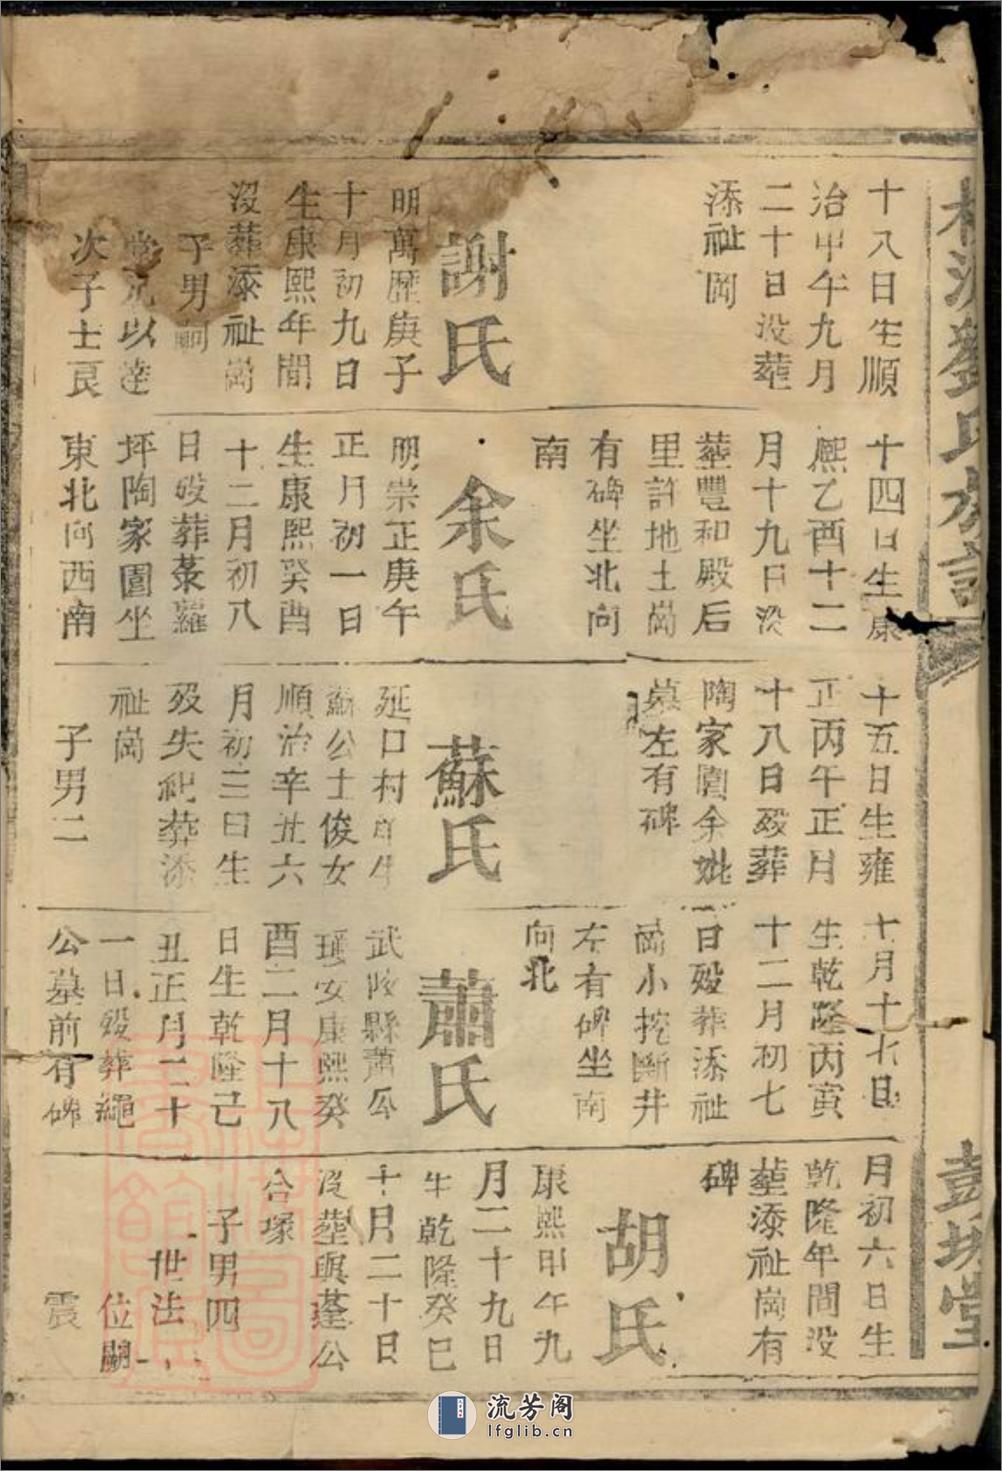 十八日生順
治甲午九月
二十日没塟
添祉岡
謝氏
明萬歷庚子
十月初九日
生康熙年間
没葬添祉崗
子男嗣
堂兄以達
次子士良
十四日生康
熙乙酉十二
月十九日没
塟豐和殿后
里許地土崗
有碑坐北向
南
余氏
明崇正庚午
正月初一日
生康熙癸酉
十二月初八
日歿葬菉蘿
坪陶家園坐
東北向西南
十五日生雍
正丙午正月
十八日歿葬
陶家園余妣
墓左有碑
蘇氏
延口村
蘇公士俊女
順治辛丑六
月初三日生
歿失祀葬添
祉崗
子男二
七月十七日
生乾隆丙寅
十二月初七
日歿葬添祉
崗小挖斷井
左有碑坐南
向北
蕭氏
武陵縣蕭公
瑶安康熙癸
酉二月十八
日生乾隆己
丑正月二十
一日歿葬繩
公墓前有碑
月初六日生
乾隆年間没
塟添祉崗有
碑
胡氏
康熙甲午九
月二十九日
生乾隆癸巳
十月二十日
没塟與蓬公
合塚
子男四
世法
位嗣
震
劉氏
彭城堂
流芳阁
lfglib.cn